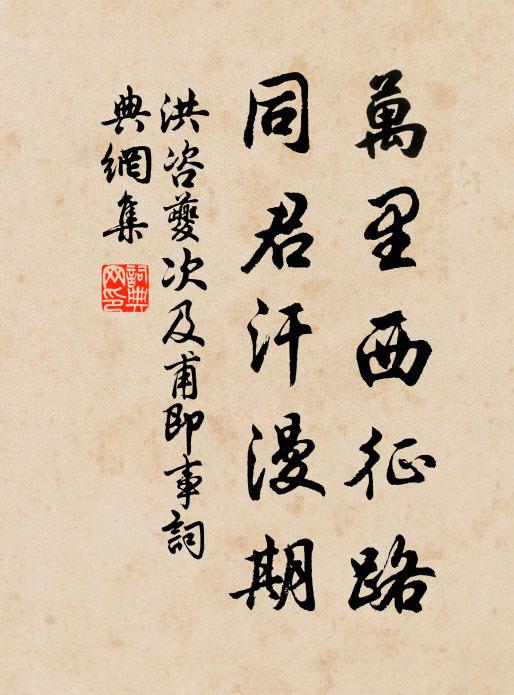 萬里西征路
同君汗漫期
洪咨夔次及甫即事詞
典網集
詞典網印